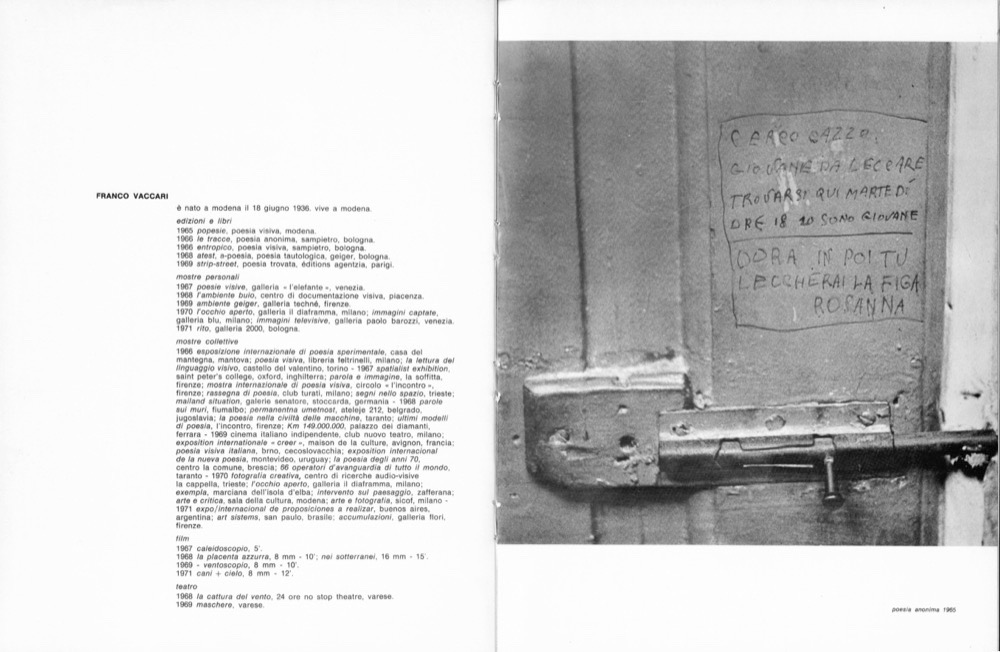 FRANCO VACCARI
è nato a modena il 18 giugno 1936. vive a modena.
edizioni e libri
1965 popesie, poesia visiva, modena.
1966 le tracce, poesia anonima, sampietro, bologna.
1966 entropico, poesia visiva, sampietro, bologna.
1968 atest, e-poesia, poesia tautologica, geiger, bologna.
1969 strip-street, poesia trovata, éditions agentzia, parigi.
mostre personali
1967 poesie visive, galleria « l'elefante », venezia.
1968 l'ambiente buio, centro di documentazione visiva, piacenza.
1969 ambiente geiger, galleria techné, firenze.
1970 l'occhio aperto, galleria il diaframma, milano; immagini captate,
galleria blu, milano; immagini televisive, galleria paolo barozzi, venezia.
1971 rito, galleria 2000, bologna.
mostre collettive
1966 esposizione internazionale di poesia sperimentale, casa del
mantegna, mantova; poesia visiva, libreria feltrinelli, milano; la lettura del
linguaggio visivo, castello del valentino, torino - 1967 spatialist exhibition,
saint peter's college, oxford, inghilterra; parola e immagine, la soffitta,
firenze; mostra internazionale di poesia visiva, circolo « l'incontro »,
firenze; rassegna di poesia, club turati, milano; segni nello spazio, trieste;
mailand situation, galerie senatore, stoccarda, germania - 1968 parole
sui muri, fiumalbo; permanentna umetnost, ateleje 212, belgrado,
jugoslavia; la poesia nella civiltà delle macchine, taranto; ultimi modelli
di poesia, l'incontro, firenze; Km 149.000.000, palazzo dei diamanti,
ferrara - 1969 cinema italiano indipendente, club nuovo teatro, milano;
exposition internationale « creer », maison de la culture, avignon, francia;
poesia visiva italiana, brno, cecoslovacchia; exposition internacional
de la nueva poesia, montevideo, uruguay; la poesia degli anni 70,
centro la comune, brescia; 66 operatori d'avanguardia di tutto il mondo,
taranto - 1970 fotografia creativa, centro di ricerche audio-visive
la cappella, trieste; l'occhio aperto, galleria il diaframma, milano;
exempla, marciana dell'isola d'elba; intervento sul paesaggio, zafferana;
arte e critica, sala della cultura, modena; arte e fotografia, sicof, milano -
1971 expo/internacional de proposiciones a realizar, buenos aires,
argentina; art sistems, san paulo, brasile; accumulazioni, galleria flori,
firenze.
film
1967 caleidoscopio, 5'.
1968 la placenta azzurra, 8 mm - 10'; nei sotterranei, 16 mm - 15'.
1969 - ventoscopio, 8 mm - 10'.
1971 cani + cielo, 8 mm - 12'.
teatro
1968 la cattura del vento, 24 ore no stop theatre, varese.
1969 maschere, varese.
CERCO CAZZO
GIOVANE DA LECCARE
TROVARSI QUI MARTEDÍ
ORE 18 IO SONO GIOVANE
DORA IN POI TU
LECCHERAI LA FIGA
ROSANNA
poesia anonima 1965